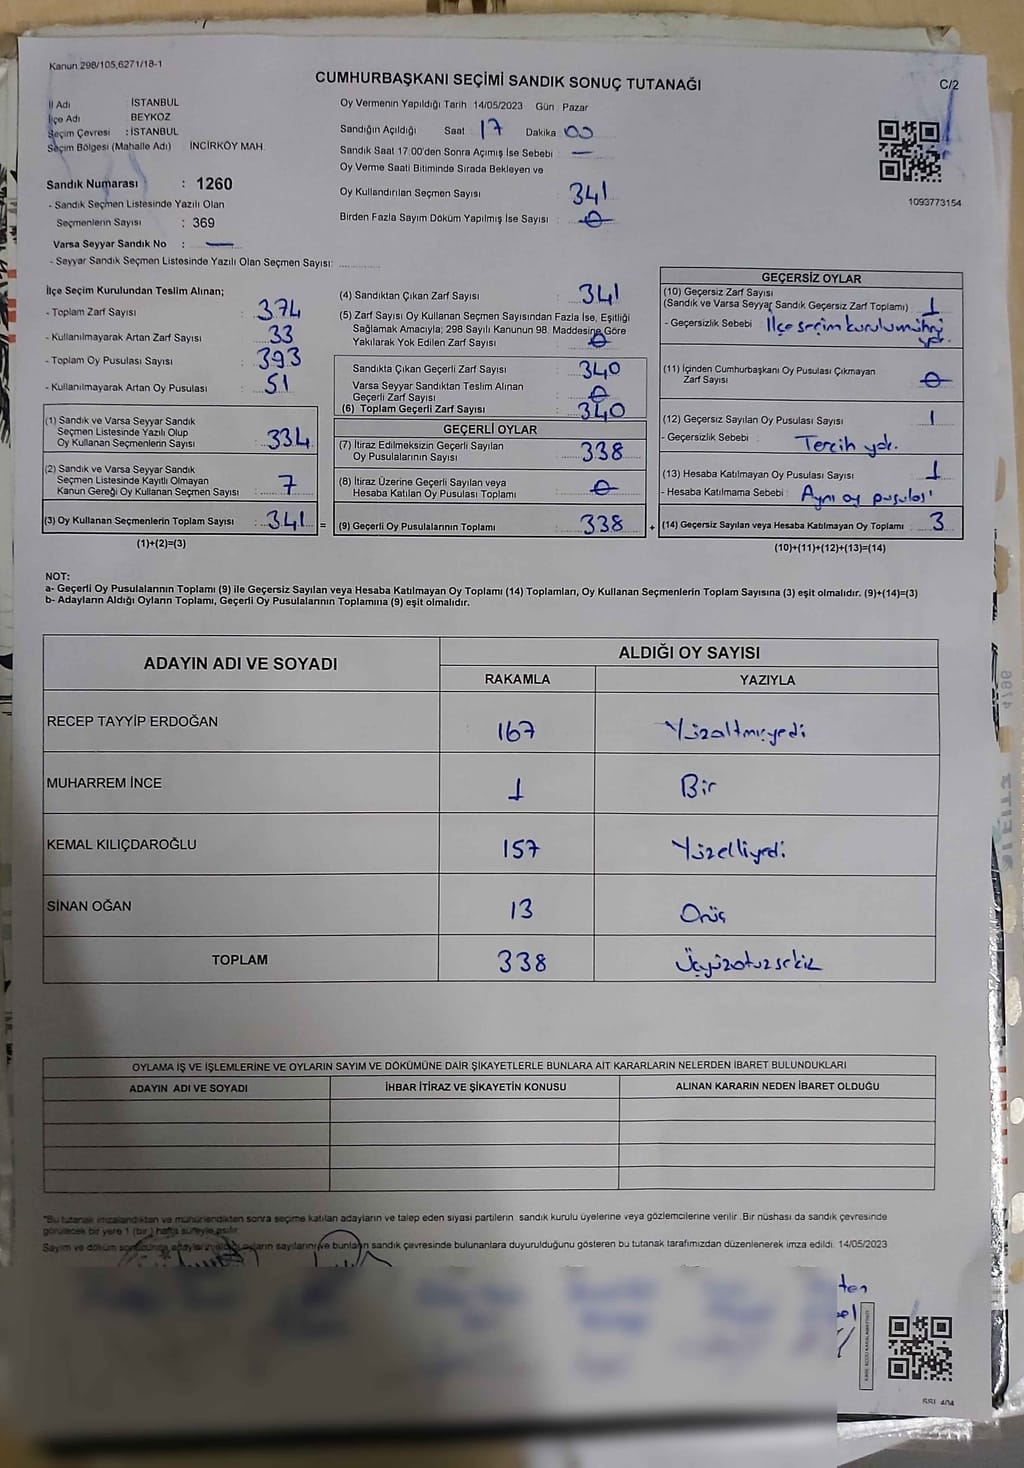 Kanun 298/105,6271/18-1
CUMHURBAŞKANI SEÇİMİ SANDIK SONUÇ TUTANAĞI
C/2
İl Adı İSTANBUL
İlçe Adı BEYKOZ
Seçim Çevresi : İSTANBUL
Seçim Bölgesi (Mahalle Adı) İNCİRKÖY MAH.
Sandık Numarası : 1260
- Sandık Seçmen Listesinde Yazılı Olan
Seçmenlerin Sayısı : 369
Varsa Seyyar Sandık No : —
- Seyyar Sandık Seçmen Listesinde Yazılı Olan Seçmen Sayısı: ............
Oy Vermenin Yapıldığı Tarih 14/05/2023 Gün Pazar
Sandığın Açıldığı Saat 17 Dakika 00
Sandık Saat 17:00'den Sonra Açımış İse Sebebi : —
Oy Verme Saati Bitiminde Sırada Bekleyen ve
Oy Kullandırılan Seçmen Sayısı : 341
Birden Fazla Sayım Döküm Yapılmış İse Sayısı : 0
1093773154
İlçe Seçim Kurulundan Teslim Alınan;
- Toplam Zarf Sayısı : 374
- Kullanılmayarak Artan Zarf Sayısı : 33
- Toplam Oy Pusulası Sayısı : 393
- Kullanılmayarak Artan Oy Pusulası : 51
(1) Sandık ve Varsa Seyyar Sandık
Seçmen Listesinde Yazılı Olup
Oy Kullanan Seçmenlerin Sayısı : 334
(2) Sandık ve Varsa Seyyar Sandık
Seçmen Listesinde Kayıtlı Olmayan
Kanun Gereği Oy Kullanan Seçmen Sayısı : 7
(3) Oy Kullanan Seçmenlerin Toplam Sayısı : 341 =
(1)+(2)=(3)
(4) Sandıktan Çıkan Zarf Sayısı : 341
(5) Zarf Sayısı Oy Kullanan Seçmen Sayısından Fazla İse, Eşitliği
Sağlamak Amacıyla; 298 Sayılı Kanunun 98. Maddesine Göre
Yakılarak Yok Edilen Zarf Sayısı : 0
Sandıkta Çıkan Geçerli Zarf Sayısı : 340
Varsa Seyyar Sandıktan Teslim Alınan
Geçerli Zarf Sayısı : 0
(6) Toplam Geçerli Zarf Sayısı : 340
GEÇERLİ OYLAR
(7) İtiraz Edilmeksizin Geçerli Sayılan
Oy Pusulalarının Sayısı : 338
(8) İtiraz Üzerine Geçerli Sayılan veya
Hesaba Katılan Oy Pusulası Toplamı : 0
(9) Geçerli Oy Pusulalarının Toplamı : 338 +
GEÇERSİZ OYLAR
(10) Geçersiz Zarf Sayısı
(Sandık ve Varsa Seyyar Sandık Geçersiz Zarf Toplamı) : 1
- Geçersizlik Sebebi : İlçe seçim kurulu mührü
yok.
(11) İçinden Cumhurbaşkanı Oy Pusulası Çıkmayan
Zarf Sayısı : 0
(12) Geçersiz Sayılan Oy Pusulası Sayısı : 1
- Geçersizlik Sebebi : Tercih yok.
(13) Hesaba Katılmayan Oy Pusulası Sayısı : 1
- Hesaba Katılmama Sebebi : Aynı oy pusulası
(14) Geçersiz Sayılan veya Hesaba Katılmayan Oy Toplamı : 3
(10)+(11)+(12)+(13)=(14)
NOT:
a- Geçerli Oy Pusulalarının Toplamı (9) ile Geçersiz Sayılan veya Hesaba Katılmayan Oy Toplamı (14) Toplamları, Oy Kullanan Seçmenlerin Toplam Sayısına (3) eşit olmalıdır. (9)+(14)=(3)
b- Adayların Aldığı Oyların Toplamı, Geçerli Oy Pusulalarının Toplamına (9) eşit olmalıdır.
ADAYIN ADI VE SOYADI
ALDIĞI OY SAYISI
RAKAMLA YAZIYLA
RECEP TAYYİP ERDOĞAN 167 Yüzaltmışyedi
MUHARREM İNCE 1 Bir
KEMAL KILIÇDAROĞLU 157 Yüzelliyedi
SİNAN OĞAN 13 Onüç
TOPLAM 338 Üçyüzotuzsekiz
OYLAMA İŞ VE İŞLEMLERİNE VE OYLARIN SAYIM VE DÖKÜMÜNE DAİR ŞİKAYETLERLE BUNLARA AİT KARARLARIN NELERDEN İBARET BULUNDUKLARI
ADAYIN ADI VE SOYADI İHBAR İTİRAZ VE ŞİKAYETİN KONUSU ALINAN KARARIN NEDEN İBARET OLDUĞU
*Bu tutanak imzalandıktan ve mühürlendikten sonra seçime katılan adayların ve talep eden siyasi partilerin sandık kurulu üyelerine veya gözlemcilerine verilir. Bir nüshası da sandık çevresinde
görülecek bir yere 1 (bir) hafta süreyle asılır.
Sayım ve döküm sonucunda adayların aldığı oyların sayılarını ve bunların sandık çevresinde bulunanlara duyurulduğunu gösteren bu tutanak tarafımızdan düzenlenerek imza edildi. 14/05/2023